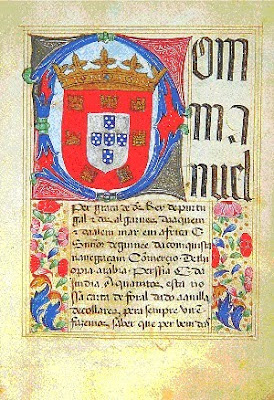 Dom
ma
nuel
Per graça de ds Rey de purtu
gal & dos algarues daaquem
& daalem mar em africa
Sñor de guinee da conquista
nauegaçam Comerçio Dethi
opia arabia Perssia & da
india. A quantos esta no
ssa carta de foral dado aa villa
de collares, pera sempre virẽ
fazemos saber que per bem das